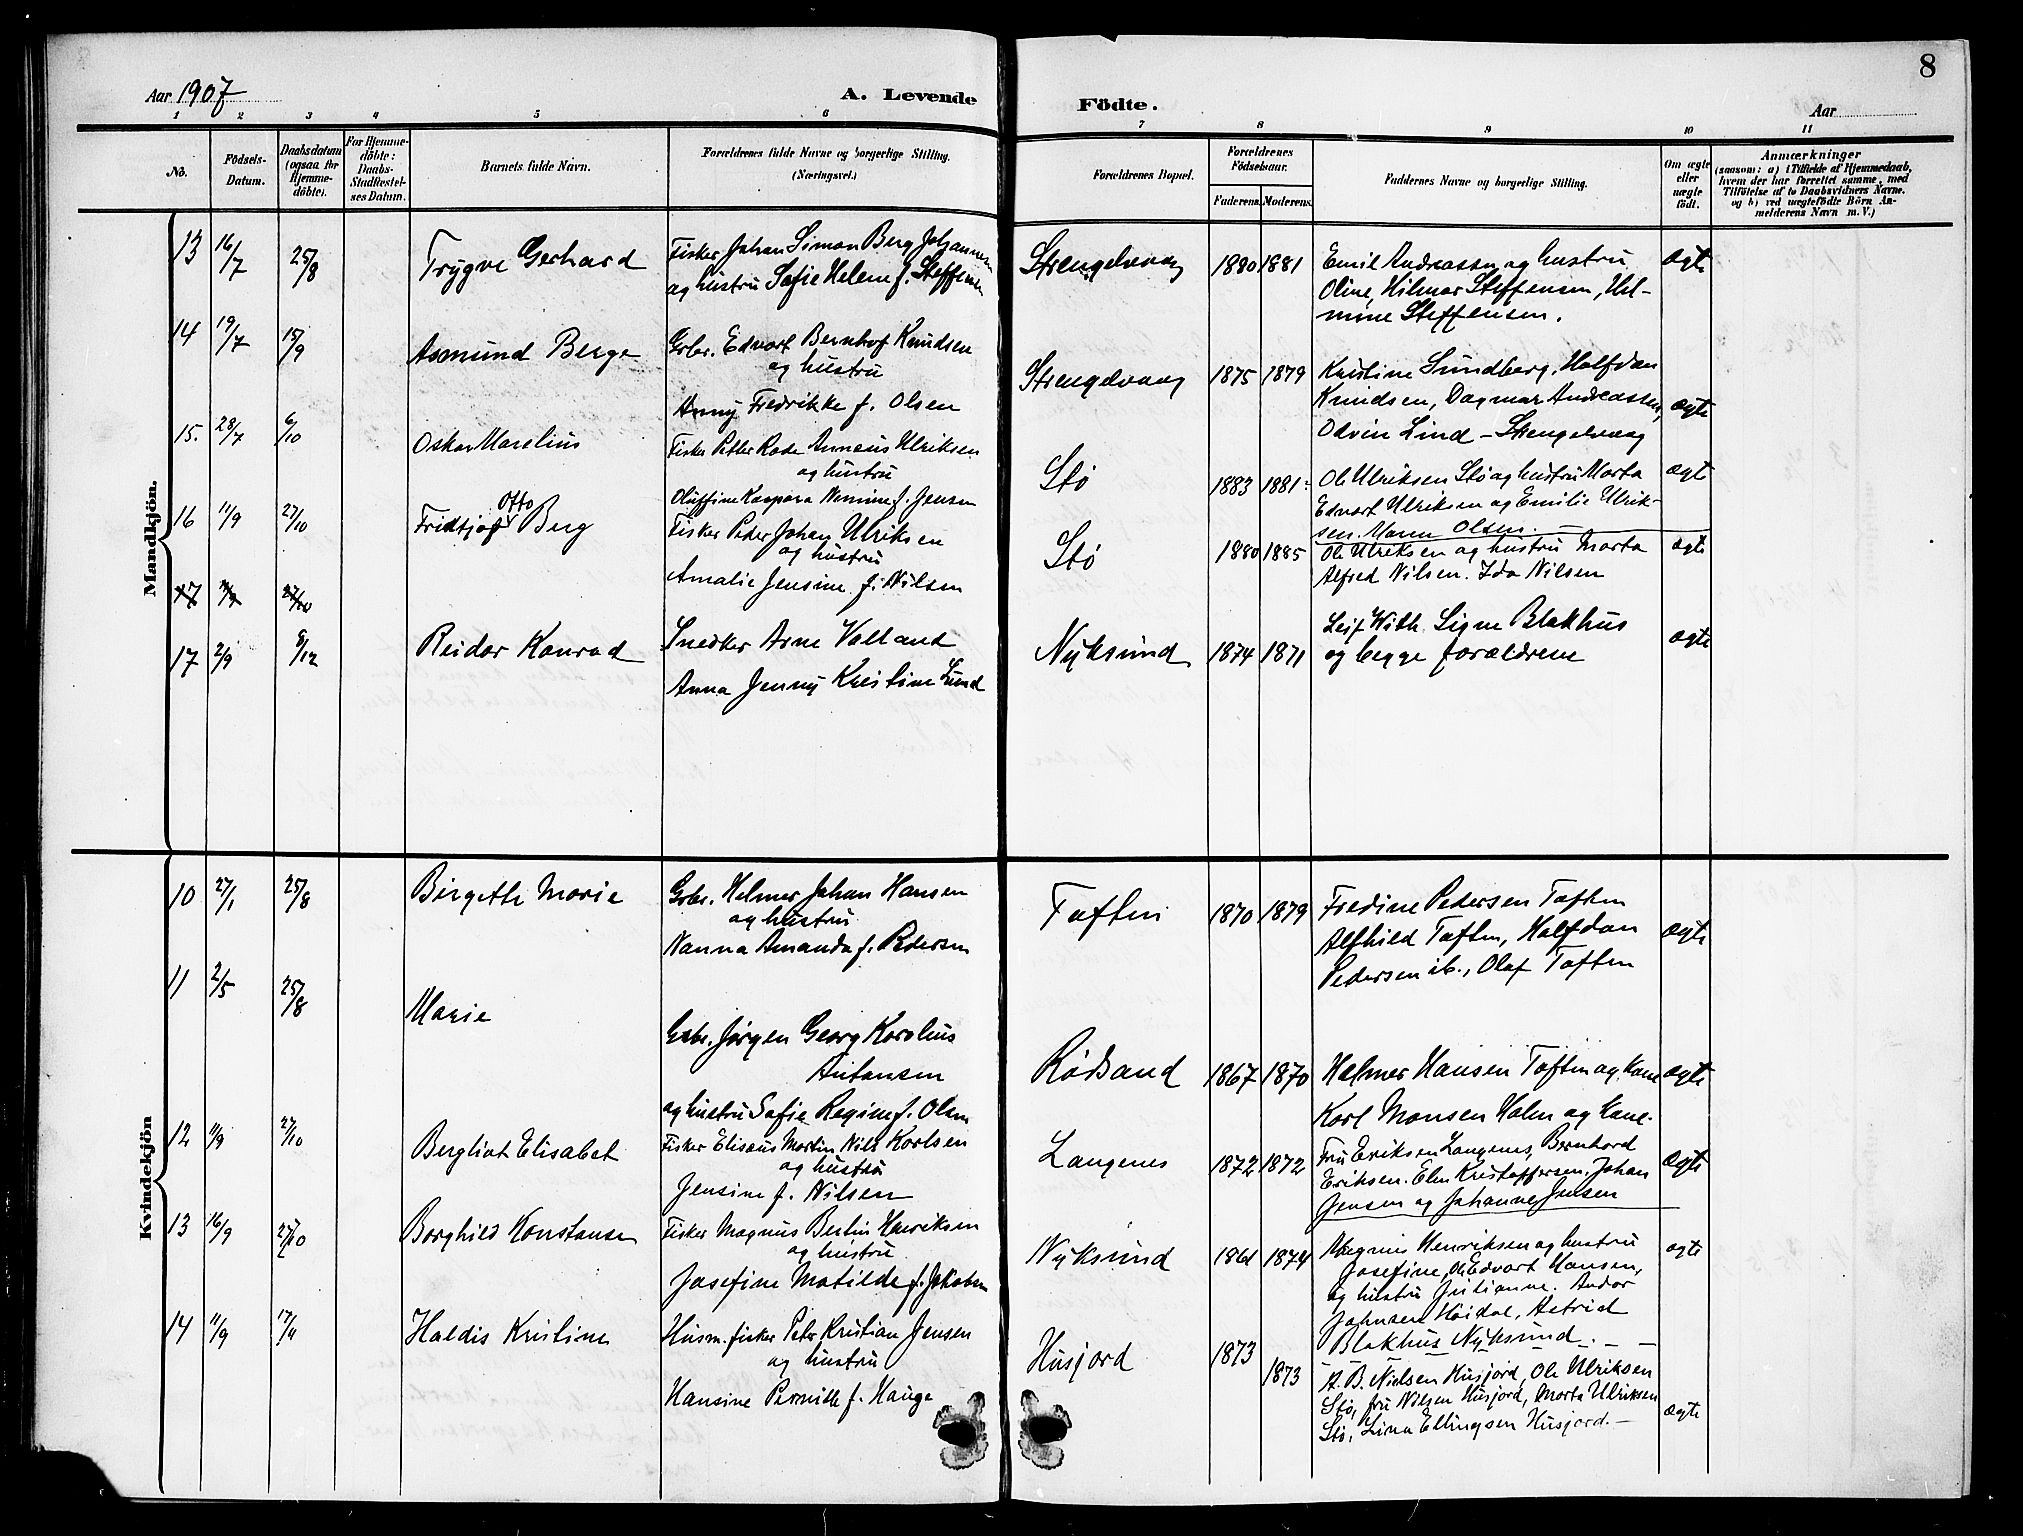 8
Aar 1907
A. Levende Födte.
Aar
1 2 3 4 5 6 7 8 9 10 11
No.
Födsels-Datum.
Daabsdatum (ogsaa for Hjemme-döbte).
For Hjemme-döbte: Daabs-Stadfæstel-ses Datum.
Barnets fulde Navn.
Forældrenes fulde Navne og borgerlige Stilling.
(Næringsvei.)
Forældrenes Bopæl.
Forældrenes Födselsaar.
Faderens. Moderens.
Faddernes Navne og borgerlige Stilling.
Om ægte eller uægte födt.
Anmærkninger
(saasom: a) i Tilfælde af Hjemmedaab,
hvem der har forrettet samme, med
Tilföielse af to Daabsvidners Navne.
og b) ved uægtefödte Börn An-
melderens Navn m. V.)
Mandkjön.
13 16/7 25/8 Trygve Gerhard
Fisker Johan Simon Berg Johannesen
og hustru Sofie Helene f. Steffensen
Strengelvaag 1880 1881
Emil Andreassen og hustru
Oline, Hilmar Steffensen, Hel-
mine Steffensen.
ægte
14 19/7 15/9 Asmund Berge
Grbr. Edvart Bernhof Knudsen
og hustru
Anny Fredrikke f. Olsen
Strengelvaag 1875 1879
Kristine Sundberg, Halfdan
Knudsen, Dagmar Andreassen,
Odvin Lind - Strengelvaag
ægte
15. 28/7 6/10 Oskar Marelius
Fisker Petter Rode Anneus Ulriksen
og hustru
Oluffine Kaspara Nemine f. Jensen
Stö 1883 1881
Ole Ulriksen Stö og hustru Marta
Edvart Ulriksen og Emilie Ulrik-
sen. Olsen.
ægte
16 11/9 27/10 Fridtjof Otto Berg
Fisker Peder Johan Ulriksen
og hustru
Amalie Jensine f. Nilsen
Stö 1880 1885
Ole Ulriksen og hustru Marta
Alfred Nilsen. Ida Nilsen
ægte
17 27/10
17 2/9 8/12 Reidar Konrad
Snedker Arne Valland
Anna Jenny Kristine Lund
Nyksund 1874 1871
Leif With. Signe Blakhus
og begge forældrene
ægte
Kvindekjön
10 27/1 25/8 Birgethe Marie
Grbr. Helmer Johan Hansen
og hustru
Nanna Amanda f. Pedersen
Toften 1870 1879
Fredine Pedersen Toften
Alfhild Toften, Halfdan
Pedersen ib., Olaf Toften
ægte
11 2/5 25/8 Marie
Grbr. Jørgen Georg Karolius
Antonsen
og hustru Sofie Regine f. Olsen
Rödsand 1867 1870
Helmer Hansen Toften og Kone
Karl Monsen Holm og Kone.
ægte
12 11/9 27/10 Bergliot Elisabet
Fisker Elisæus Martin Nils Karlsen
og hustru
Jensine f. Nilsen
Langenes 1872 1872
Fru Eriksen Langenes, Bernhard
Eriksen. Elen Kristoffersen. Johan
Jensen og Johanne Jensen
ægte
13 16/9 27/10 Borghild Konstanse
Fisker Magnus Bertin Henriksen
og hustru
Josefine Matilde f. Jakobsen
Nyksund 1861 1874
Magnus Henriksen og hustru
Josefine, Ole Edvart Hansen,
og hustru Julianne. Andor
Johnsen Höidal, Astrid
Blakhus Nyksund.
ægte
14 11/9 17/11 Haldis Kristine
Husm. fisker Peter Kristian Jensen
og hustru
Hansine Pernille f. Hauge
Husjord 1873 1873
A. B. Nielsen Husjord, Ole Ulriksen
Stö, fru Nilsen Husjord, Marta Ulriksen
Stö, Lina Ellingsen Husjord.
ægte